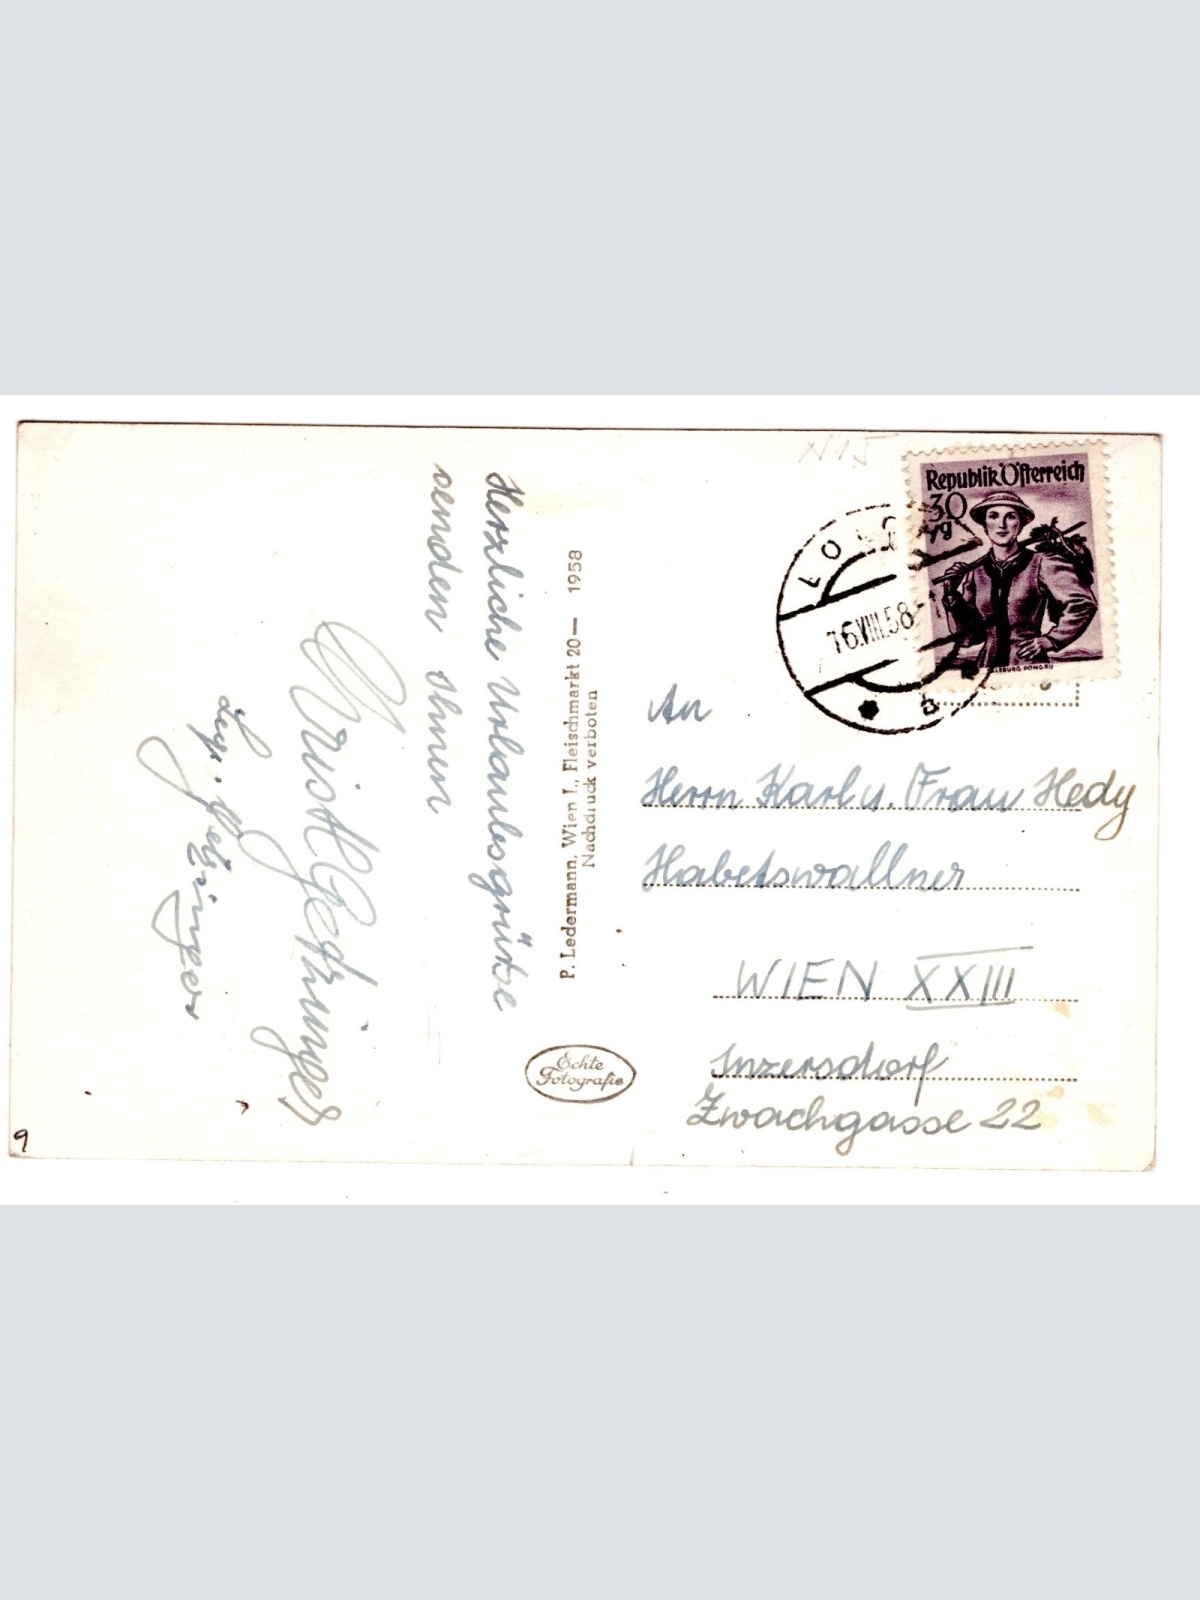 Herzliche Urlaubsgrüsse
senden Ihnen
P. Ledermann, Wien I., Fleischmarkt 20— 1958
Nachdruck verboten
Echte
Fotografie
N15
Republik Österreich
30
g
SALZBURG PONGAU
VIII.58
An
Herrn Karl u. Frau Hedy
Habetswallner
WIEN XXIII
Inzersdorf
Zwachgasse 22
9